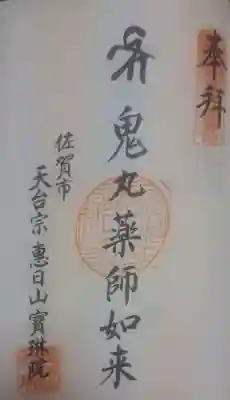 奉拝
鬼丸薬師如来
佐賀市
天台宗惠日山寳琳院